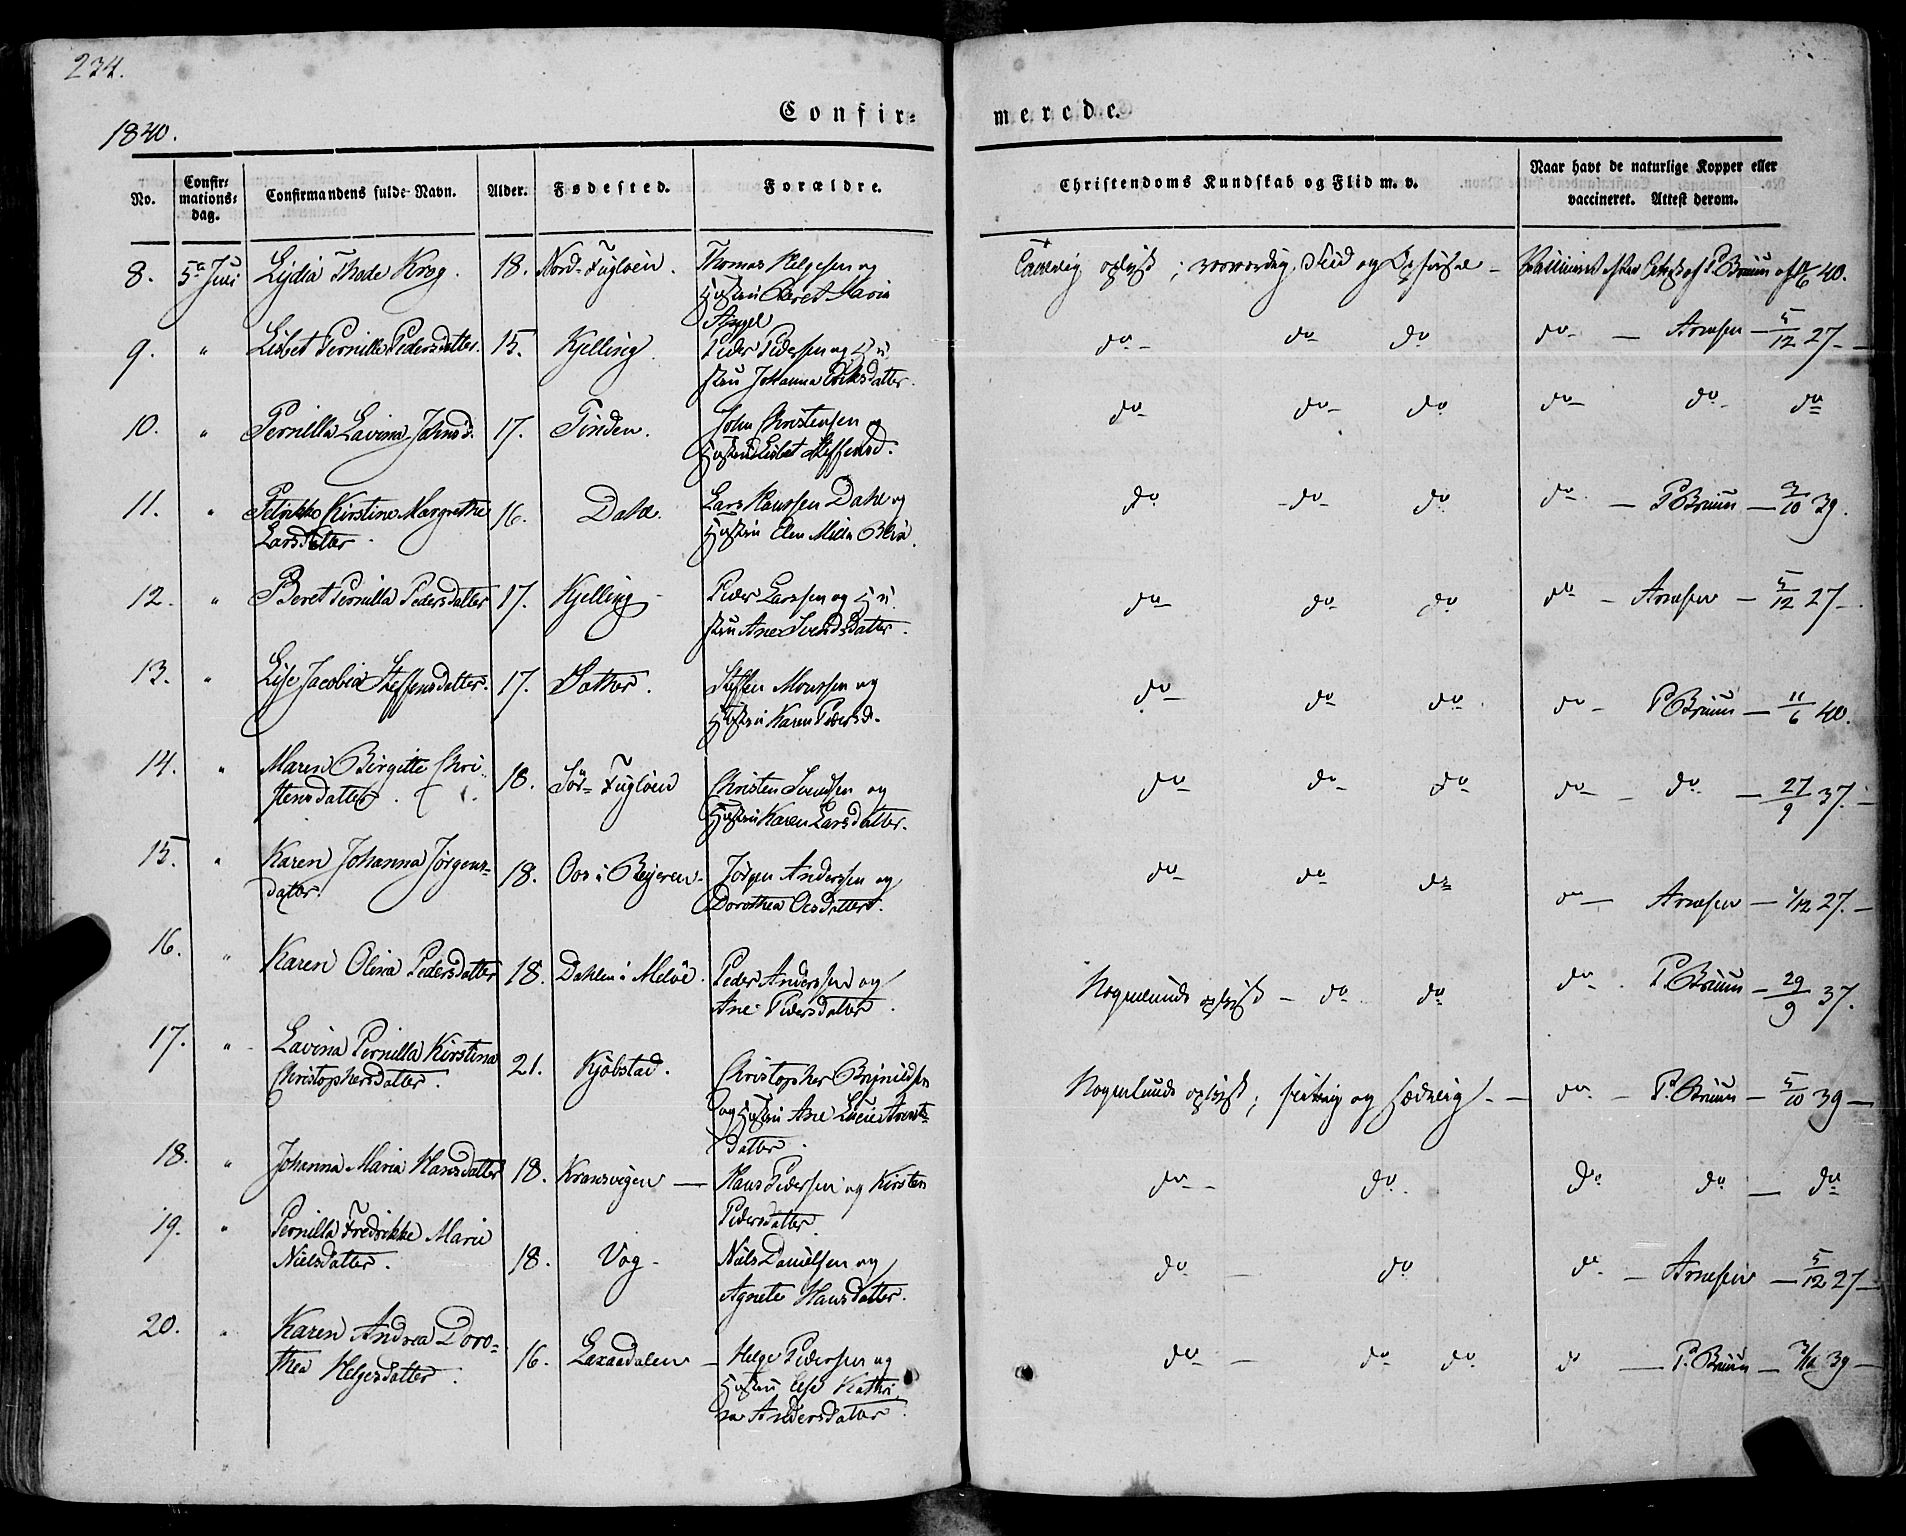 234.
1840.
Confir=
merede.
No.
Confir=
mations=
dag.
Confirmandens fulde Navn.
Alder.
Fødested.
Forældre.
Christendoms Kundskab og Flid m. v.
Naar havt de naturlige Kopper eller
vaccineret. Attest derom.
8. 5te Juli Lydia Thode Krog. 18. Nord-Fugløen. Thomas Helgesen og
Hustru Beret Maria
Angel
oplyst; Flid og Opførsel - Vaccineret efter Attest af P Bruun af 11/6 40.
9. " Lisbet Pernille Pedersdatter. 15. Kjelling. Peder Pedersen og Hu
stru Johanna Eriksdatter.
do - do do do - Arnesen - 5/12 27 -
10. " Pernilla Lavina Johnsd. 17. Tinden. John Christensen og
Hustru Lisbet Steffensd.
do - do - do do - do - do
11. " Petrikke Kirstine Margrethe 16. Dahl. Lars Hanssen Dahl og
Larsdatter. Hustru Elen
do - do - do do - P Bruun - 9/10 39.
12. " Beret Pernilla Pedersdatter 17. Kjelling - Peder Larssen og Hu
stru Ane Svendsdatter.
do - do do do - Arnesen - 5/12 27 -
13. " Lise Jacobia Steffensdatter. 17. Sather. Steffen Monssen og
Hustru Karen Pedersd.
do - do do do - P Bruun - 11/6 40.
14. " Maren Birgitte Chri
stensdatter. 18. Sør-Fugløen Christen Svendsen og
Hustru Karen Larsdatter.
do do do do - do - 27/9 37. -
15. " Karen Johanna Jørgens=
datter. 18. Oos i Beyeren. Jørgen Anderssen og
Dorothea Olsdatter.
do do do do - Arnesen - 1/12 27. -
16. " Karen Olina Pedersdatter 18. Dahlen i Meløe. Peder Anderssen og
Ane Pedersdatter.
Nogenlunde oplyst - do do do - P Bruun - 29/9 37.
17. " Lavina Pernilla Kirstina
Christophersdatter. 21. Kjøbstad. Christopher Brynildsen
og Hustru Ane Lucie Arnts=
datter.
Nogenlunde oplyst; flittig og sædelig - do - P. Bruun - 5/10 39 -
18. " Johanna Maria Hansdatter 18. Kransvigen - Hans Pedersen og Kirsten
Pedersdatter
do - do. do do - do
19. " Pernilla Fredrikke Marie
Nielsdatter. 18. Vog - Niels Danielsen og
Agnete Hansdatter.
do - do do - Arnesen - 5/12 27 -
20. " Karen Andrea Doro=
thea Helgesdatter. 16. Laxaadalen - Helge Pedersen og
Hustru Else Kathri
na Andersdatter.
do - do do do - P. Bruun - 3/10 39 -